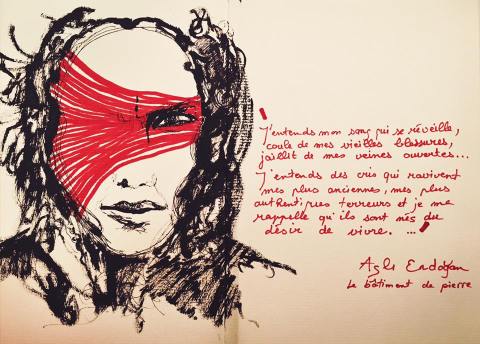 J'entends mon sang qui se réveille,
coule de mes vieilles blessures,
jaillit de mes veines ouvertes...
J'entends des cris qui ravivent
mes plus anciennes, mes plus
authentiques terreurs et je me
rappelle qu'ils sont nés du
désir de vivre. ...
Aslı Erdoğan
Le bâtiment de pierre